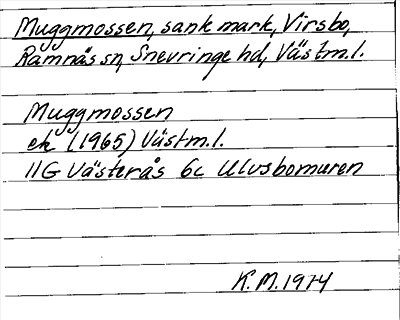 Muggmossen, sank mark, Virsbo,
Ramnäs sn, Snevringe hd, Västm.l.
Muggmossen
ek (1965) Västm.l.
11G Västerås 6c Ulvsbomuren
K.M. 1974